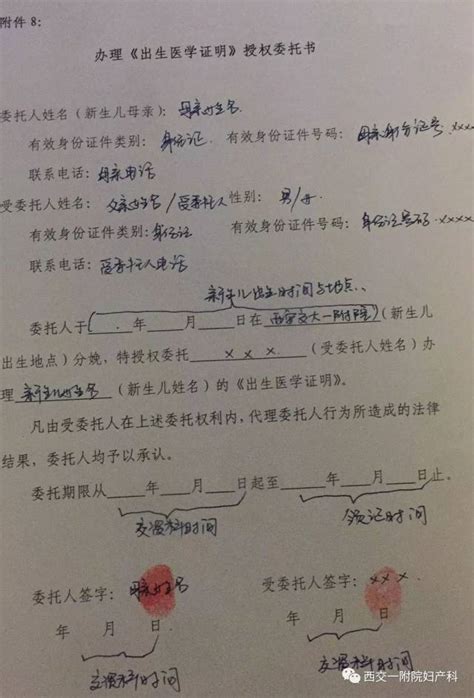 附件 8:
办理《出生医学证明》授权委托书
委托人姓名（新生儿母亲）: 母亲姓名
有效身份证件类别: 身份证 有效身份证件号码: 母亲身份证号 xxxx
联系电话: 母亲电话
受委托人姓名: 父亲姓名/受委托人 性别: 男/女
有效身份证件类别: 身份证 有效身份证件号码: 身份证号码 xxxx
联系电话: 受委托人电话
新生儿出生时间与地点
委托人于 年 月 日在 西安交大一附院（新生儿
出生地点）分娩，特授权委托 x x x （受委托人姓名）办
理 新生儿姓名 （新生儿姓名）的《出生医学证明》。
凡由受委托人在上述委托权利内，代理委托人行为所造成的法律
结果，委托人均予以承认。
委托期限从 年 月 日起至 年 月 日止。
交资料时间 领证时间
委托人签字: 母亲姓名 受委托人签字: x x x
年 月 日 年 月 日
交资料时间 交资料时间
西交一附院妇产科